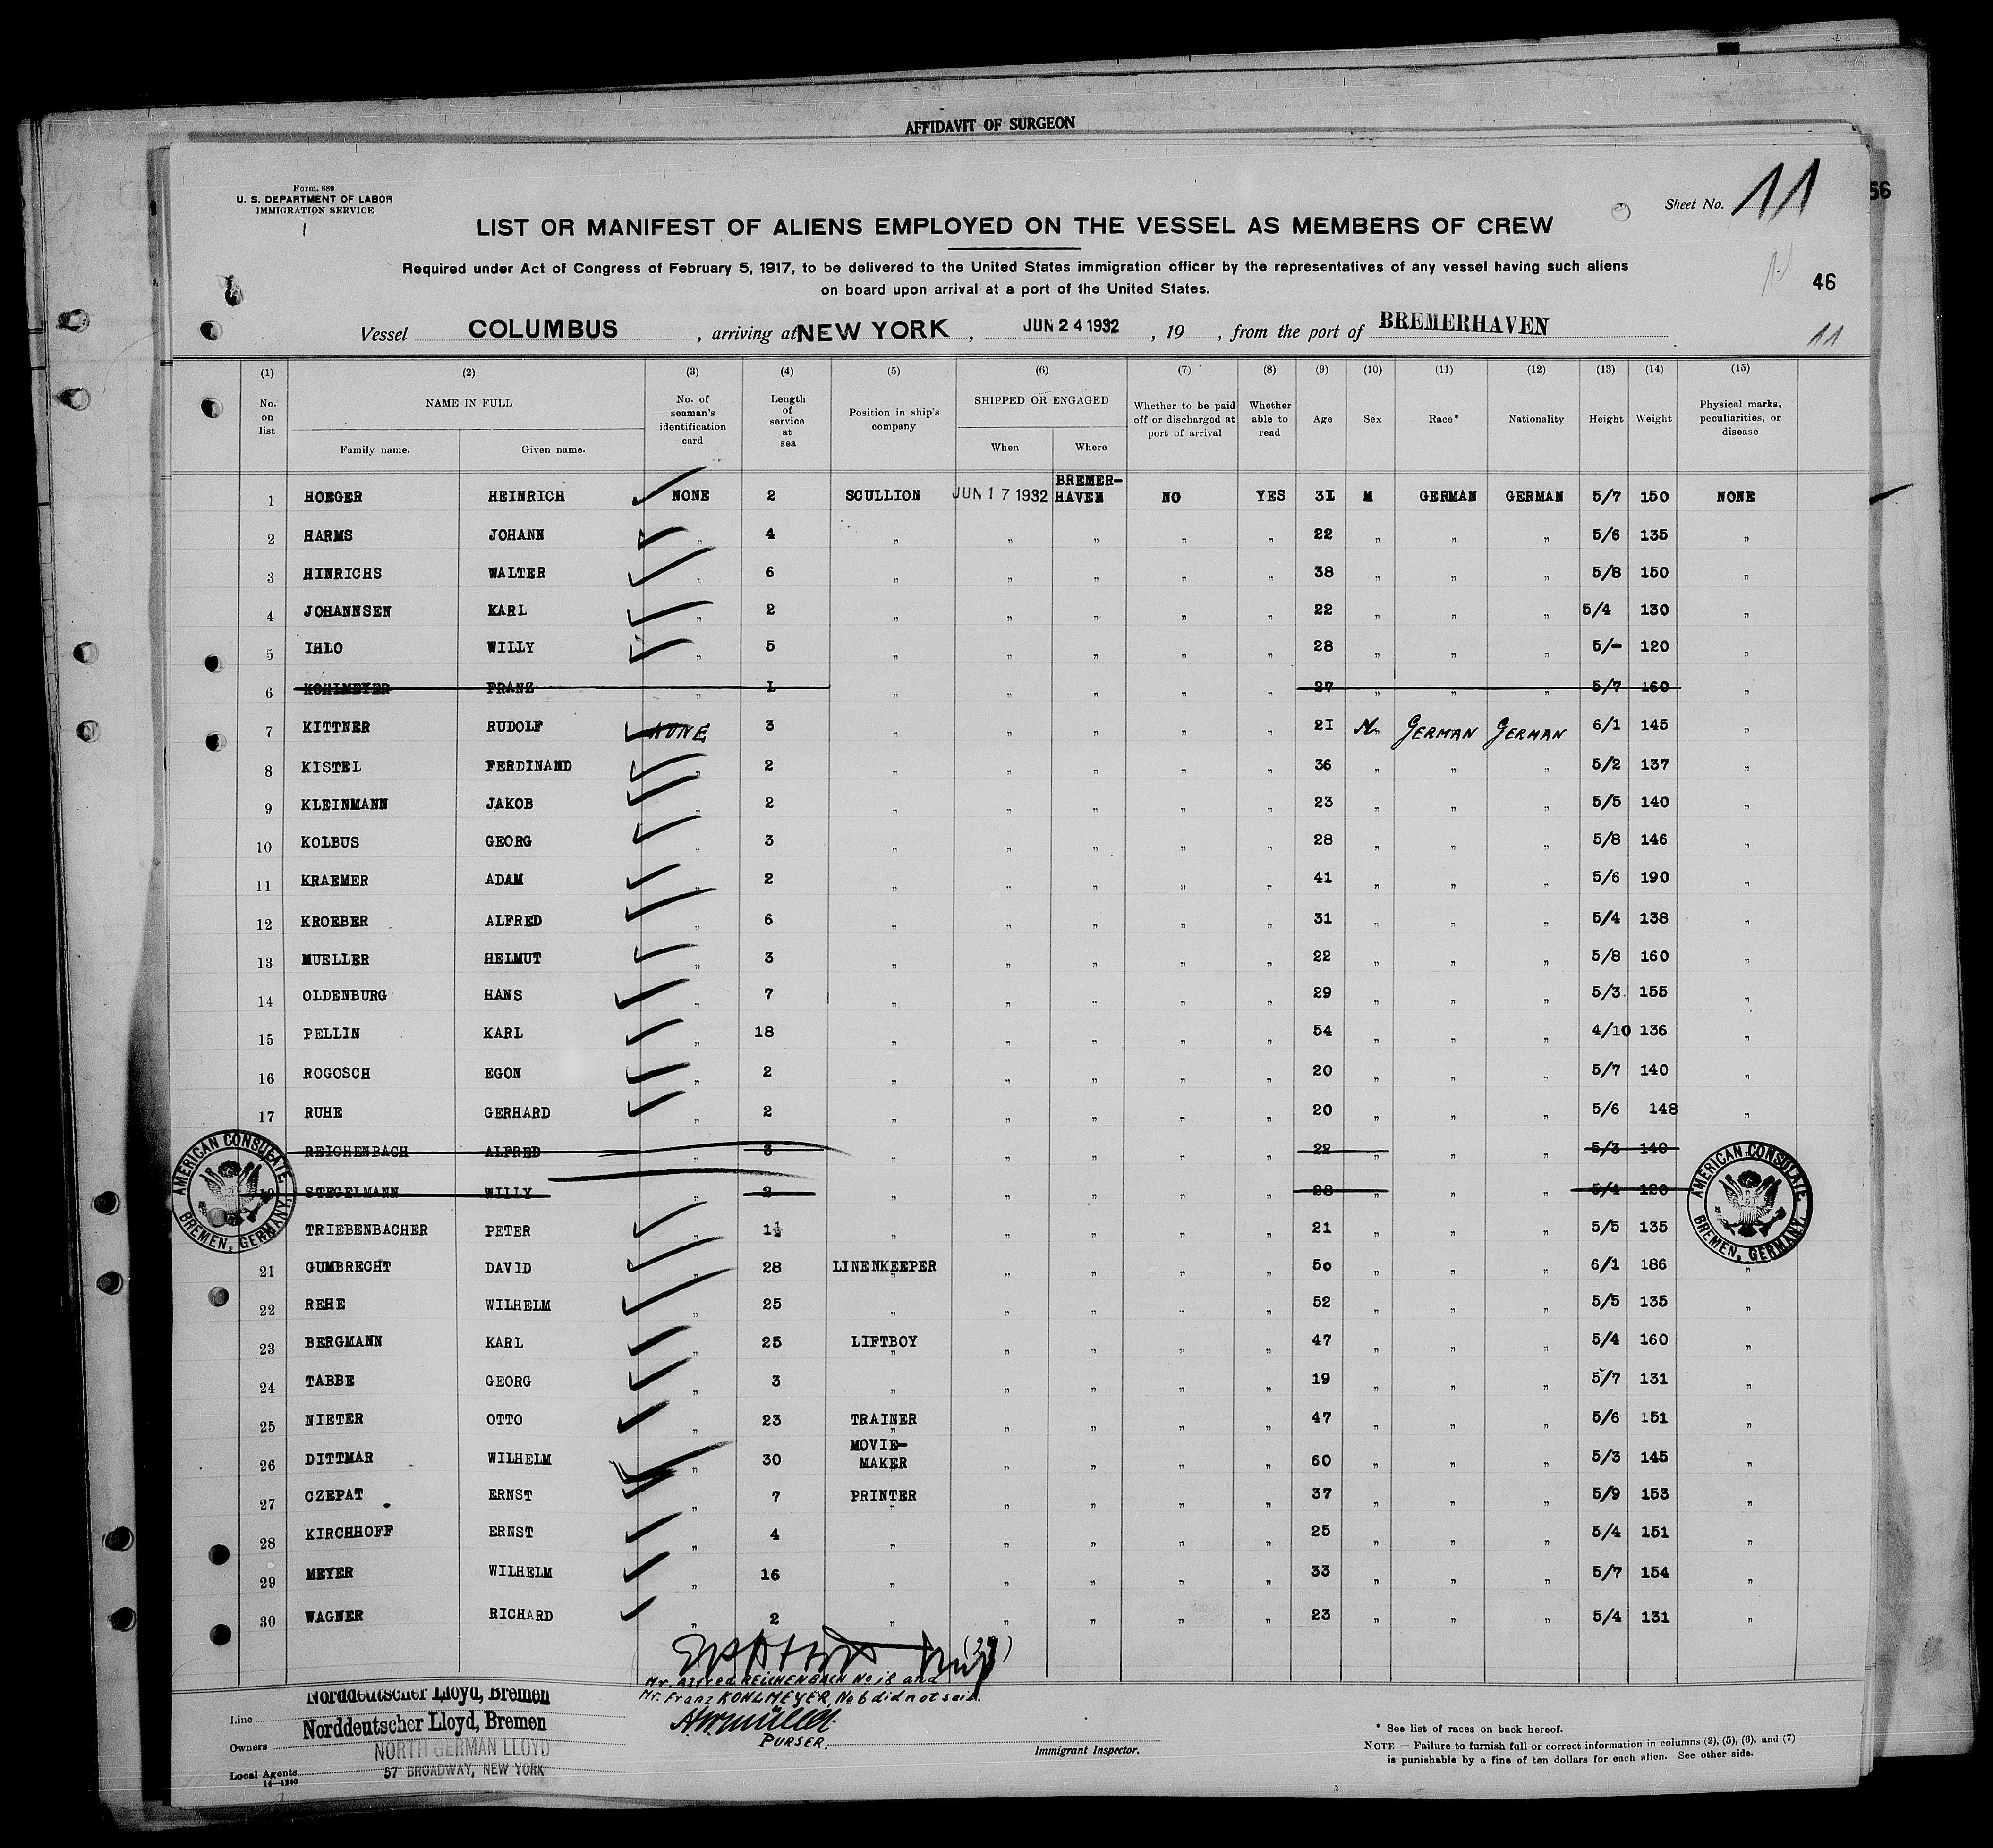 AFFIDAVIT OF SURGEON
Form. 680
U. S. DEPARTMENT OF LABOR
IMMIGRATION SERVICE
Sheet No. 11
56
LIST OR MANIFEST OF ALIENS EMPLOYED ON THE VESSEL AS MEMBERS OF CREW
Required under Act of Congress of February 5, 1917, to be delivered to the United States immigration officer by the representatives of any vessel having such aliens
on board upon arrival at a port of the United States.
46
Vessel COLUMBUS , arriving at NEW YORK , JUN 24 1932 , 19 , from the port of BREMERHAVEN
11
(1) (2) (3) (4) (5) (6) (7) (8) (9) (10) (11) (12) (13) (14) (15)
No. on list
NAME IN FULL
Family name. Given name.
No. of seaman's identification card
Length of service at sea
Position in ship's company
SHIPPED OR ENGAGED
When Where
Whether to be paid off or discharged at port of arrival
Whether able to read
Age Sex Race* Nationality Height Weight
Physical marks, peculiarities, or disease
1 HOEGER HEINRICH NONE 2 SCULLION JUN 17 1932 BREMER-HAVEN NO YES 31 M GERMAN GERMAN 5/7 150 NONE
2 HARMS JOHANN " 4 " " " " " 22 " " " 5/6 135 "
3 HINRICHS WALTER " 6 " " " " " 38 " " " 5/8 150 "
4 JOHANNSEN KARL " 2 " " " " " 22 " " " 5/4 130 "
5 IHLO WILLY " 5 " " " " " 28 " " " 5/- 120 "
6 KOHLMEYER FRANZ " 1 " " " " " 27 " " " 5/7 160 "
7 KITTNER RUDOLF NONE 3 " " " " " 21 M GERMAN GERMAN 6/1 145 "
8 KISTEL FERDINAND " 2 " " " " " 36 " " " 5/2 137 "
9 KLEINMANN JAKOB " 2 " " " " " 23 " " " 5/5 140 "
10 KOLBUS GEORG " 3 " " " " " 28 " " " 5/8 146 "
11 KRAEMER ADAM " 2 " " " " " 41 " " " 5/6 190 "
12 KROEBER ALFRED " 6 " " " " " 31 " " " 5/4 138 "
13 MUELLER HELMUT " 3 " " " " " 22 " " " 5/8 160 "
14 OLDENBURG HANS " 7 " " " " " 29 " " " 5/3 155 "
15 PELLIN KARL " 18 " " " " " 54 " " " 4/10 136 "
16 ROGOSCH EGON " 2 " " " " " 20 " " " 5/7 140 "
17 RUHE GERHARD " 2 " " " " " 20 " " " 5/6 148 "
REICHENBACH ALFRED " 3 " " " " " 22 " " " 5/3 140
19 STEGELMANN WILLY " 2 " " " " " 28 " " " 5/4 120
TRIEBENBACHER PETER " 1½ " " " " " 21 " " " 5/5 135
AMERICAN CONSULATE BREMEN, GERMANY.
AMERICAN CONSULATE BREMEN, GERMANY.
21 GUMBRECHT DAVID " 28 LINENKEEPER " " " " 50 " " " 6/1 186 "
22 REHE WILHELM " 25 " " " " " 52 " " " 5/5 135 "
23 BERGMANN KARL " 25 LIFTBOY " " " " 47 " " " 5/4 160 "
24 TABBE GEORG " 3 " " " " " 19 " " " 5/7 131 "
25 NIETER OTTO " 23 TRAINER " " " " 47 " " " 5/6 151 "
26 DITTMAR WILHELM " 30 MOVIE-MAKER " " " " 60 " " " 5/3 145 "
27 CZEPAT ERNST " 7 PRINTER " " " " 37 " " " 5/9 153 "
28 KIRCHHOFF ERNST " 4 " " " " " 25 " " " 5/4 151 "
29 MEYER WILHELM " 16 " " " " " 33 " " " 5/7 154 "
30 WAGNER RICHARD " 2 " " " " " 23 " " " 5/4 131 "
Mr. Alfred REICHENBACH No 18 and
Mr. Franz KOHLMEYER, No 6 did not sail.
PURSER.
Immigrant Inspector.
Norddeutscher Lloyd, Bremen
Line
Norddeutscher Lloyd, Bremen
Owners
NORTH GERMAN LLOYD
Local Agents 57 BROADWAY, NEW YORK
14—1240
* See list of races on back hereof.
NOTE — Failure to furnish full or correct information in columns (2), (5), (6), and (7)
is punishable by a fine of ten dollars for each alien. See other side.